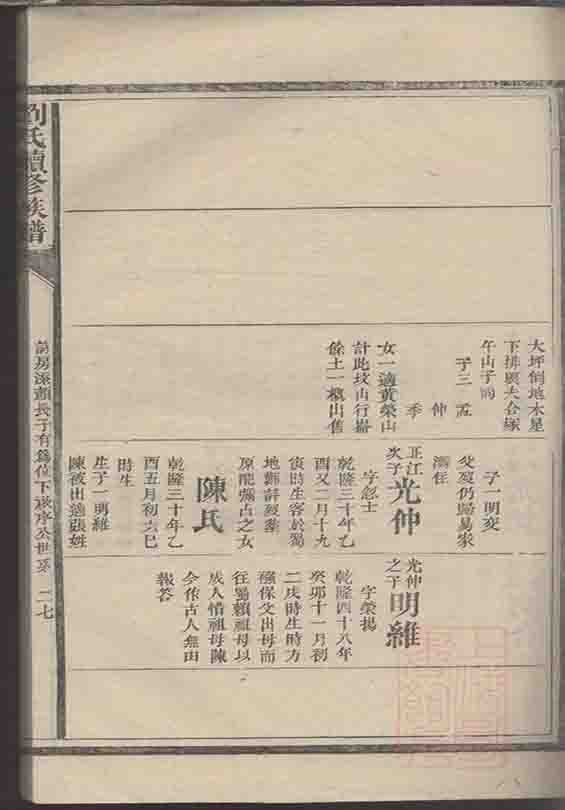 劉氏續修族譜
大坪倒地木星
下排與大合塚
午山子向
子三 孟
仲
季
女一適黃榮山
計此坟山行葬
餘土一槪出舊
子一明变
父歿仍歸易家
正江次子
光仲
字
乾隆三十年乙
酉又二月十九
時生客於蜀
地
原配張占之女
陳氏
乾隆三十年乙
酉五月初六巳
時生
生子一明維
陳彼出適張姓
光仲之子
明維
字榮揚
乾隆四十八年
癸卯十一月初
二戌時生時方
襁保父出母而
往蜀賴祖母以
成人情祖母陳
今依古人無由
報答
長子有爲位下
公世系
二七